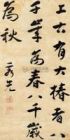 上古有大椿者以八
千歲為春八千歲
為秋